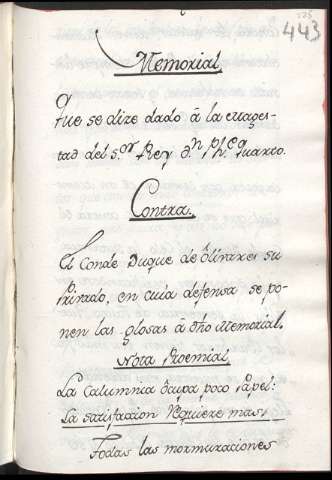 443
Memorial,
Que se dize dado â la magês-
tad del s.or Rey d.n Ph.e quarto.
Contra.
El Conde Duque de Olivares su
Privado, en cuia defensa se po-
nen las glosas â dho Memorial.
Nota Proemial,
La Calumnia ócupa poco Papel:
La satisfaccion Requiere mas,
Todas las mormuraciones